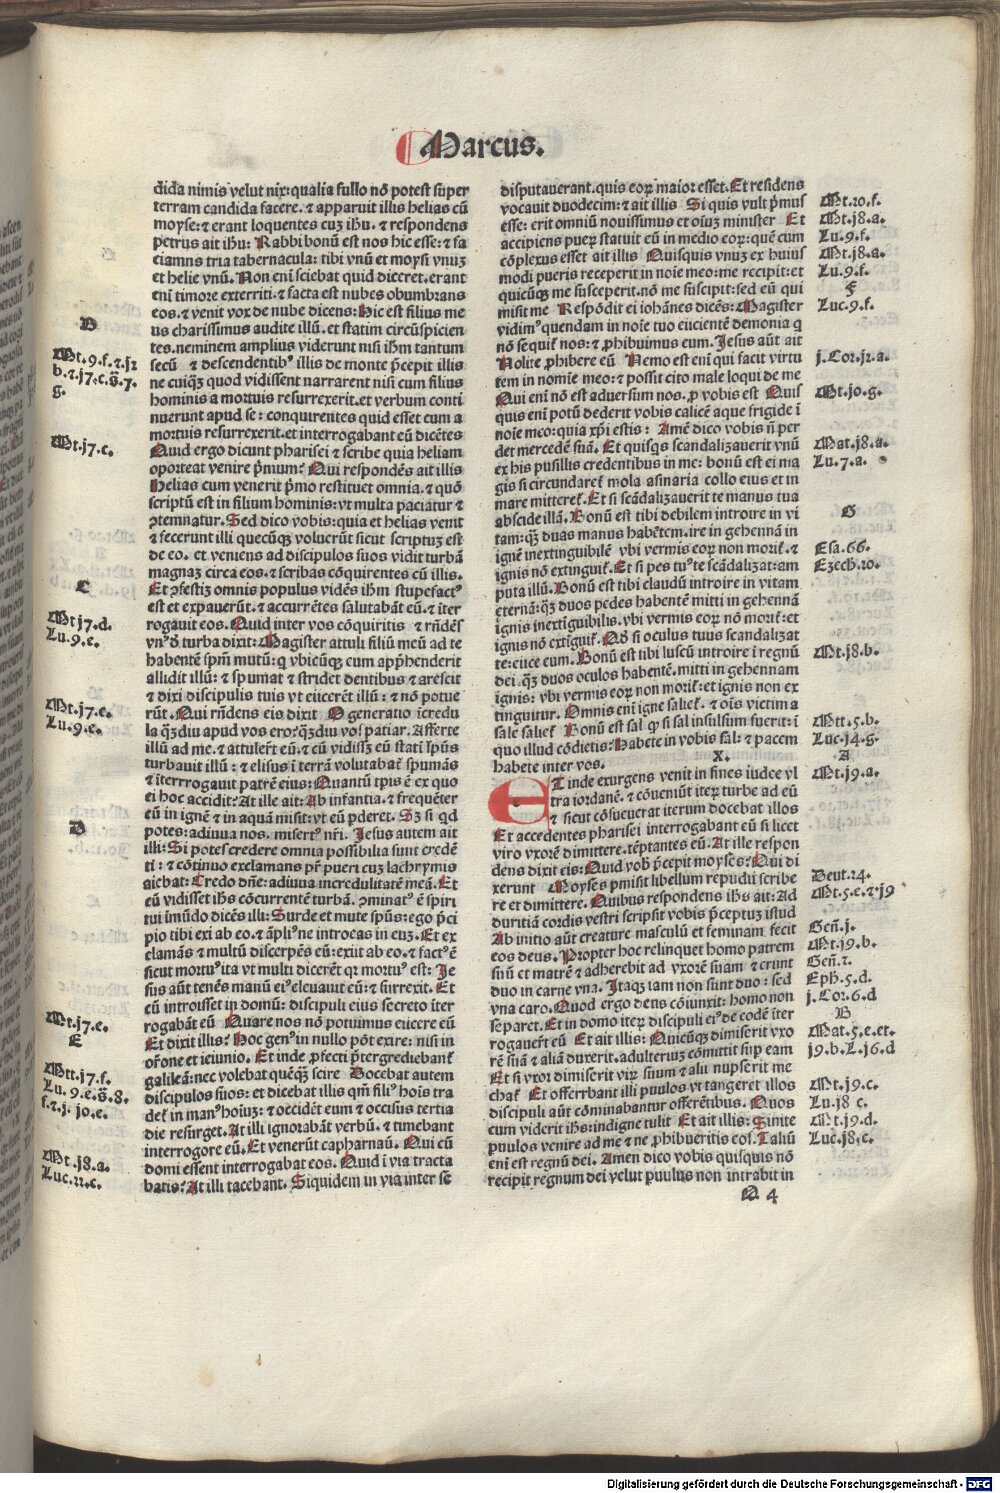 Marcus.
dida nimis velut nix: qualia fullo nõ potest sup̲er
terram candida facere. ⁊ apparuit illis helias cũ
moyse: ⁊ erant loquentes cuꝫ ihu. ⁊ respondens
petrus ait ihu: Rabbi bonũ est nos hic esse: ⁊ fa
ciamus tria tabernacula: tibi vnũ et moysi vnuꝫ
et helie vnũ. Non eni sciebat quid diceret. erant
eni timore exterriti. ⁊ facta est nubes obumbrans
eos. ⁊ venit vox de nube dicens: Hic est filius me
us charissimus audite illũ. et statim circũspicien
tes. neminem amplius viderunt nisi ihm tantum
secũ ⁊ descendentibꝰ illis de monte p̃cepit illis
ne cuiqꝫ quod vidissent narrarent nisi cum filius
hominis a mortuis resurrexerit. et verbum conti
nuerunt apud se: conquirentes quid esset cum a
mortuis resurrexerit. et interrogabant eũ dicẽtes
Quid ergo dicunt pharisei ⁊ scribe quia heliam
oporteat venire p̃mum? Qui respondẽs ait illis
Helias cum venerit p̃mo restituet omnia. ⁊ quõ
scriptũ est in filium hominis: vt multa paciatur ⁊
ꝯtemnatur. Sed dico vobis: quia et helias venit
⁊ fecerunt illi quecũqꝫ voluerũt sicut scriptuꝫ est
de eo. et veniens ad discipulos suos vidit turbã
magnaꝫ circa eos. ⁊ scribas cõquirentes cũ illis.
Et ꝯfestiꝫ omnis populus vidẽs ihm stupefactꝰ
est et expauerũt. ⁊ accurrẽtes salutabãt eũ. ⁊ iter
rogauit eos. Quid inter vos cõquiritis ⁊ rñdẽs
vnꝰ d̃ turba dixit: Magister attuli filiũ meũ ad te
habentẽ spm mutũ: q vbicũqꝫ eum app̃henderit
allidit illũ: ⁊ spumat ⁊ stridet dentibus ⁊ arescit
⁊ dixi discipulis tuis vt eiicerẽt illũ: ⁊ nõ potue
rũt. Qui rñdens eis dixit O generatio icredu
la qꝫdiu apud vos ero? qꝫdiu vos patiar. Afferte
illũ ad me. ⁊ attulerũt eũ. ⁊ cũ vidissꝫ eũ stati sp̃us
turbauit illũ: ⁊ elisus i terrã volutabat spumãs
⁊ iterrrogauit patrẽ eius: Quantũ tpis ẽ ex quo
ei hoc accidit? At ille ait: Ab infantia. ⁊ frequẽter
eũ in ignẽ ⁊ in aquã misit: vt eũ pderet. Sꝫ si qd
potes: adiuua nos. misertꝰ nr̃i. Jesus autem ait
illi: Si potes credere omnia possibilia sunt credẽ
ti: ⁊ cõtinuo exclamans pr̃ pueri cuꝫ lachrymis
aiebat: Credo dñe: adiuua incredulitatẽ meã. Et
eũ vidisset ihs cõcurrentẽ turbã. ꝯminatꝰ ẽ spiri
tui imũdo dicẽs illi: Surde et mute spũs: ego p̃ci
pio tibi exi ab eo. ⁊ ãpliꝰ ne introeas in euꝫ. Et ex
clamãs ⁊ multũ discerpẽs eũ: exiit ab eo. ⁊ factꝰ ẽ
sicut mortuꝰ ita vt multi dicerẽt qꝛ mortuꝰ est: Je
sus aũt tenẽs manũ eiꝰ eleuauit eũ: ⁊ surrexit. Et
eũ introisset in domũ: discipuli eius secreto iter
rogabãt eũ Quare nos nõ potuimus eiicere eũ
Et dixit illis? Hoc genꝰ in nullo põt exire: nisi in
or̃one et ieiunio. Et inde ꝓfecti p̃tergrediebanť
galileã: nec volebat quẽqꝫ scire Docebat autem
discipulos suos: et dicebat illis qm̃ filiꝰ hois tra
deť in manꝰ hoiuꝫ: ⁊ occidẽt eum ⁊ occisus tertia
die resurget. At illi ignorabãt verbũ. ⁊ timebant
interrogore eũ. Et venerũt capharnaũ. Qui cũ
domi essent interrogabat eos. Quid i via tracta
batis? At illi tacebant. Siquidem in via inter se
D
Mt.9.f.⁊.j2
b.⁊.j7.c.g̃.7.
g.
Mt.j7.c.
C
Mt j7.d.
Lu.9.e.
Mt.j7.e.
Lu.9.e.
D
Mt.j7.e.
E
Mtt.j7.f.
Lu.9.e.g̃.8.
f.⁊.j.jo.e.
Mt.j8.a.
Luc.22.c.
disputauerant. quis eorꝫ maior esset. Et residens
vocauit duodecim: ⁊ ait illis Si quis vult p̃mus
esse: erit omniũ nouissimus et oiuꝫ minister Et
accipiens puerꝫ statuit eũ in medio eorꝫ: quẽ cum
cõplexus esset ait illis Quisquis vnuꝫ ex huius
modi pueris receperit in noie meo: me recipit: et
quicũqꝫ me susceperit. nõ me suscipit: sed eũ qui
misit me Respõdit ei iohãnes dicẽs: Magister
vidimꝰ quendam in noie tuo eiicientẽ demonia q
nõ sequiť nos: ⁊ ꝓhibuimus eum. Jesus aũt ait
Nolite ꝓhibere eũ Nemo est eni qui facit virtu
tem in nomie meo: ⁊ possit cito male loqui de me
Qui eni nõ est aduersum nos. ꝓ vobis est Quis
quis eni potũ dederit vobis calicẽ aque frigide i
noie meo: quia xp̃i estis: Amẽ dico vobis ñ per
det mercedẽ suã. Et quisqs scandalizauerit vnũ
ex his pusillis credentibus in me: bonũ est ei ma
gis si circundareť mola asinaria collo eius et in
mare mittereť. Et si scãdalizauerit te manus tua
abscide illã. Bonũ est tibi debilem introire in vi
tam: qꝫ duas manus habẽtem. ire in gehennã in
ignẽ inextinguibilẽ vbi vermis eorꝫ non moriť. ⁊
ignis nõ extinguiť. Et si pes tuꝰ te scãdalizat: am
puta illũ. Bonũ est tibi claudũ introire in vitam
eternã: qꝫ duos pedes habentẽ mitti in gehennã
ignis inextiguibilis. vbi vermis eorꝫ nõ moriť: et
ignis nõ extiguiť. Q̃d si oculus tuus scandalizat
te: eiice eum. Bonũ est tibi luscũ introire i regnũ
dei. qꝫ duos oculos habentẽ. mitti in gehennam
ignis: vbi vermis eorꝫ non moriť: et ignis non ex
tinguitur. Omnis eni igne salieť. ⁊ ois victim a
sale salieť Bonũ est sal ꝙ si sal insulsum fuerit: i
quo illud cõdietis? Habete in vobis sal: ⁊ pacem
habete inter vos. X.
Et inde exurgens venit in fines iudee vl
tra iordanẽ. ⁊ cõueniũt iterꝫ turbe ad eũ
⁊ sicut cõsueuerat iterum docebat illos
Et accedentes pharisei interrogabant eũ si licet
viro vxorẽ dimittere. tẽptantes eũ. At ille respon
dens dixit eis: Quid vob p̃cepit moyses? Qui di
xerunt Moyses pmisit libellum repudii scribe
re et dimittere. Quibus respondens ihs ait: Ad
duritiã cordis vestri scripsit vobis p̃ceptuꝫ istud
Ab initio aũt creature masculũ et feminam fecit
eos deus. Propter hoc relinquet homo patrem
suũ et matrẽ ⁊ adherebit ad vxorẽ suam ⁊ erunt
duo in carne vna. Itaqꝫ iam non sunt duo: sed
vna caro. Quod ergo deus cõiunxit: homo non
separet. Et in domo iterꝫ discipuli eiꝰ de codẽ iter
rogauerť eũ Et ait illis: Quicũqꝫ dimiserit vxo
rẽ suã ⁊ aliã duxerit. adulteriuꝫ cõmittit sup eam
Et si vxor dimiserit virꝫ suum ⁊ alii nupserit me
chať Et offerrbant illi puulos vt tangeret illos
discipuli aũt cõminabantur offerẽtibus. Quos
cum viderit ihs: indigne tulit Et ait illis: Sinite
puulos venire ad me ⁊ ne ꝓhibueritis eos. Taliũ
eni est regnũ dei. Amen dico vobis quisquis nõ
recipit regnum dei velut puulus non intrabit in
D 4
Mt.20.f.
Mt.j8.a.
Lu.9.f.
Mt.j8.a.
Lu.9.f.
F
Luc.9.f.
j.Cor.j2.a.
Mt.jo.g.
Mat.j8.a.
Lu.7.a.
G
Esa.66.
Ezech.20.
Mt.j8.b.
Mtt.5.b.
Luc.j4.g.
A
Mt.j9.a.
Deut.24.
Mt.5.e.⁊ j9
Geñ.j.
Mt.j9.b.
Geñ.2.
Eph.5.d.
j.Cor.6.d
B
Mat.5.e.et.
j9.b.L.j6.d
Mt.j9.c.
Lu.j8 c.
Mt.j9.d.
Luc.j8.c.
Digitalisierung gefördert durch die Deutsche Forschungsgemeinschaft - DFG